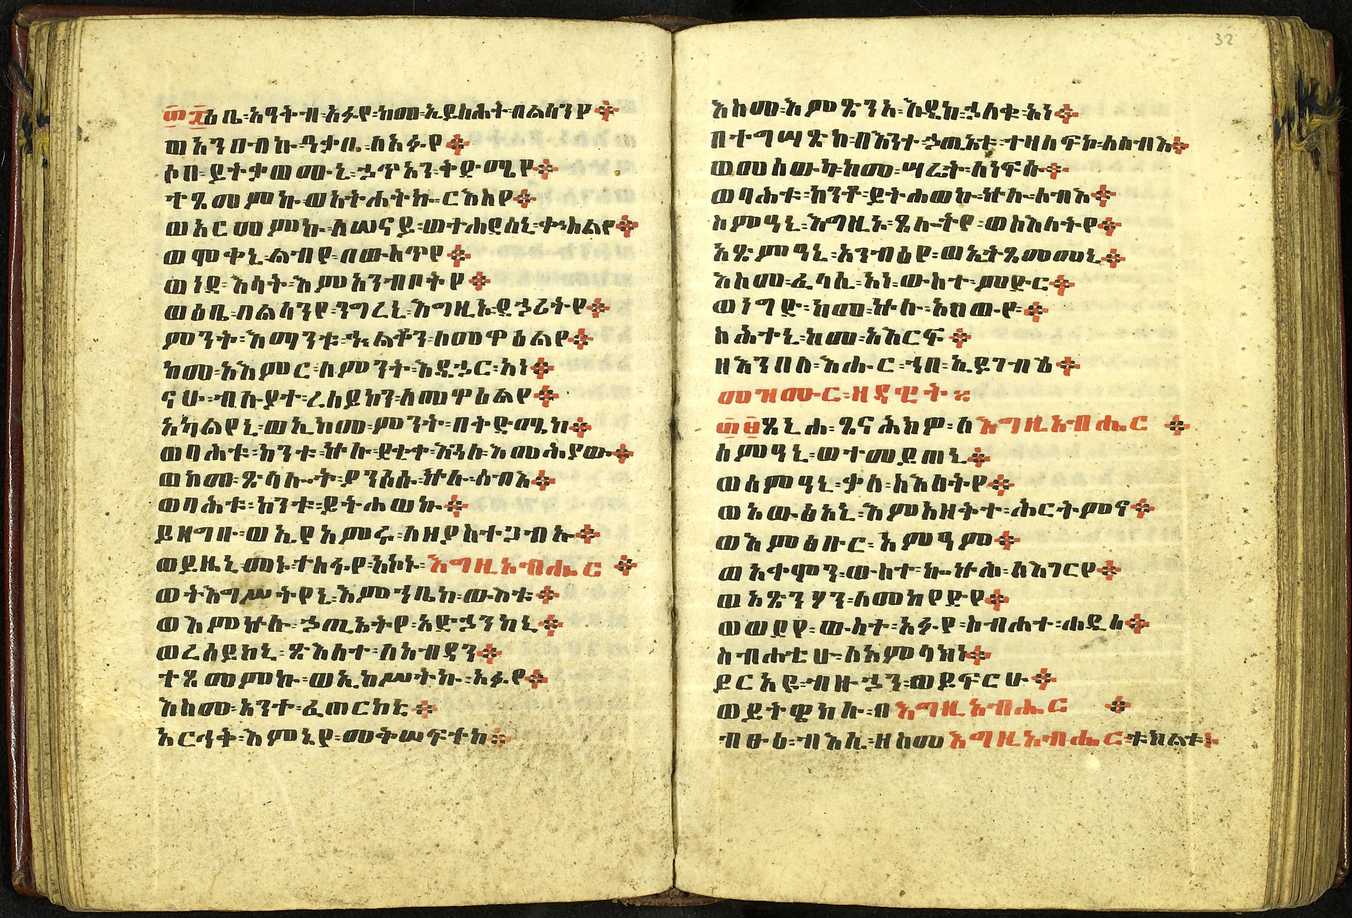 ፴፰እቤ፡አዓቅብ፡አፉየ፡ከመ፡ኢይስሕት፡በልሳንየ።
ወአንበብኩ፡ዓቃቤ፡ለአፉየ።
ሶበ፡ይትቃወሙኒ፡ኃጥአን፡ቅድሜየ።
ተጸመምኩ፡ወአትሐትኩ፡ርእስየ።
ወአርመምኩ፡ለሠናይ፡ወተሐደሰኒ፡ቍስልየ።
ወሞቀኒ፡ልብየ፡በውስጥየ።
ወነደ፡እሳት፡እምአንብቦትየ።
ወእቤ፡በልሳንየ፡ንግረኒ፡እግዚኦ፡ደኃሪትየ።
ምንት፡እማንቱ፡ኍልቆን፡ለመዋዕልየ።
ከመ፡አእምር፡ለምንት፡እዴኃር፡አነ።
ናሁ፡ብሉያተ፡ረሰይከን፡ለመዋዕልየ።
አካልየኒ፡ወኢከመ፡ምንት፡በቅድሜከ።
ወባሕቱ፡ከንቱ፡ኵሉ፡ደቂቀ፡እጓለ፡እመሕያው።
ወከመ፡ጽላሎት፡ያንሶሱ፡ኵሉ፡ሰብእ።
ወባሕቱ፡ከንቱ፡ይትሐወኩ።
ይዘግቡ፡ወኢያአምሩ፡ለዘያስተጋብኡ።
ወይዜኒ፡መኑ፡ተስፋየ፡አኮኑ፡እግዚአብሔር።
ወትእግሥትየኒ፡እምኀቤከ፡ውእቱ።
ወእምኵሉ፡ኃጢአትየ፡አድኃነኒ።
ወረሰይከኒ፡ጽእለተ፡ለአብዳን።
ተጸመምኩ፡ወኢከሠትኩ፡አፉየ።
እስመ፡አንተ፡ፈጠርከኒ።
አርኅቅ፡እምኔየ፡መቅሠፍተከ።
እስመ፡እምጽንአ፡እዴከ፡ኃለቁ፡አነ።
በተግሣጽከ፡በእንተ፡ኃጢአቱ፡ተዛለፍኮ፡ለሰብእ።
ወመሰውካ፡ከመ፡ሣሬት፡ለነፍሱ።
ወባሕቱ፡ከንቶ፡ይትሐወኩ፡ኵሉ፡ሰብእ።
ስምዓኒ፡እግዚኦ፡ጸሎትየ፡ወስእለትየ።
አጽምዓኒ፡አንብዕየ፡ወኢትጸመመኒ።
እስመ፡ፈላሲ፡አነ፡ውስተ፡ምድር።
ወነግድ፡ከመ፡ኵሉ፡አበውየ።
ስሕተኒ፡ከመ፡አእርፍ።
ዘእንበለ፡እሑር፡ኀበ፡ኢይገብእ።
መዝሙር፡ዘዳዊት።
፴፱ጸኒሐ፡ጸናሕክዎ፡ለእግዚአብሔር።
ስምዓኒ፡ወተመይጠኒ።
ወሰምዓኒ፡ቃለ፡ስእለትየ።
ወአውፅአኒ፡እምአዘቅተ፡ሕርትምና።
ወእምፅቡር፡አምዓም።
ወአቀሞን፡ውስተ፡ኰኵሕ፡ለእገርየ።
ወአጽንሃን፡ለመከየድየ።
ወወደየ፡ውስተ፡አፉየ፡ስብሐተ፡ሐዲሰ።
ስብሐቲሁ፡ለአምላክነ።
ይርአዩ፡ብዙኃን፡ወይፍርሁ።
ወይትዌከሉ፡በእግዚአብሔር።
ብፁዕ፡ብእሲ፡ዘስመ፡እግዚአብሔር፡ትክልቱ።
32